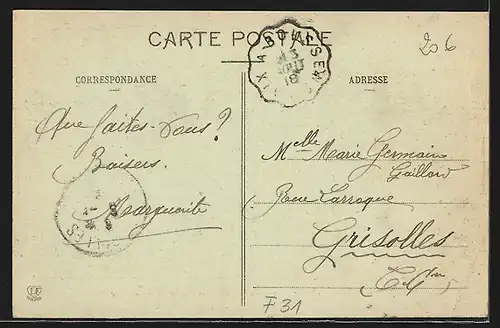 CARTE POSTALE
206
CORRESPONDANCE
ADRESSE
Que faites-vous?
Baisers.
Marguerite
Melle Marie Germain
Gaillard
Rue Larroque
Grisolles
F31